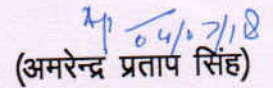 04/07/18
(अमरेन्द्र प्रताप सिंह)